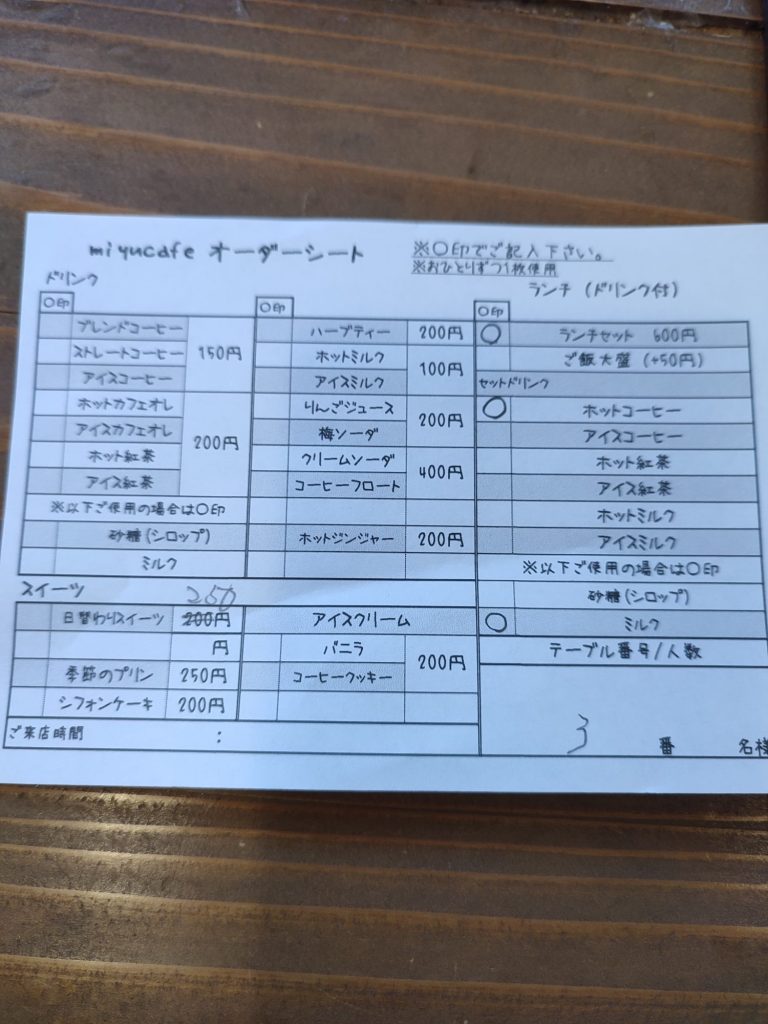 miyucafe オーダーシート
※〇印でご記入下さい。
※おひとりずつ1枚使用
ドリンク
〇印
ブレンドコーヒー
ストレートコーヒー
アイスコーヒー
150円
ホットカフェオレ
アイスカフェオレ
ホット紅茶
アイス紅茶
200円
※以下ご使用の場合は〇印
砂糖(シロップ)
ミルク
〇印
ハーブティー 200円
ホットミルク
アイスミルク
100円
りんごジュース
梅ソーダ
200円
クリームソーダ
コーヒーフロート
400円
ホットジンジャー 200円
ランチ (ドリンク付)
〇印
〇 ランチセット 600円
ご飯大盛 (+50円)
セットドリンク
〇 ホットコーヒー
アイスコーヒー
ホット紅茶
アイス紅茶
ホットミルク
アイスミルク
※以下ご使用の場合は〇印
砂糖(シロップ)
〇 ミルク
テーブル番号/人数
3 番 名様
スイーツ
250
日替わりスイーツ 200円
円
季節のプリン 250円
シフォンケーキ 200円
アイスクリーム
バニラ
コーヒークッキー
200円
ご来店時間 :